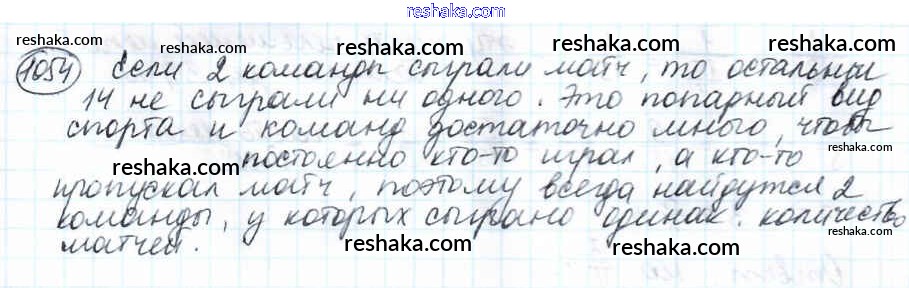 reshaka.com
reshaka.com reshaka.com reshaka.com
1054 Если 2 команды сыграли матч, то остальные
14 не сыграли ни одного. Это попарный вид
reshaka.com reshaka.com reshaka.com
спорта и команд достаточно много, чтобы
reshaka.com
постоянно кто-то играл, а кто-то
reshaka.com
пропускал матч, поэтому всегда найдутся 2
reshaka.com reshaka.com
команды, у которых сыграно одинак. количество
матчей.
reshaka.com reshaka.com reshaka.com